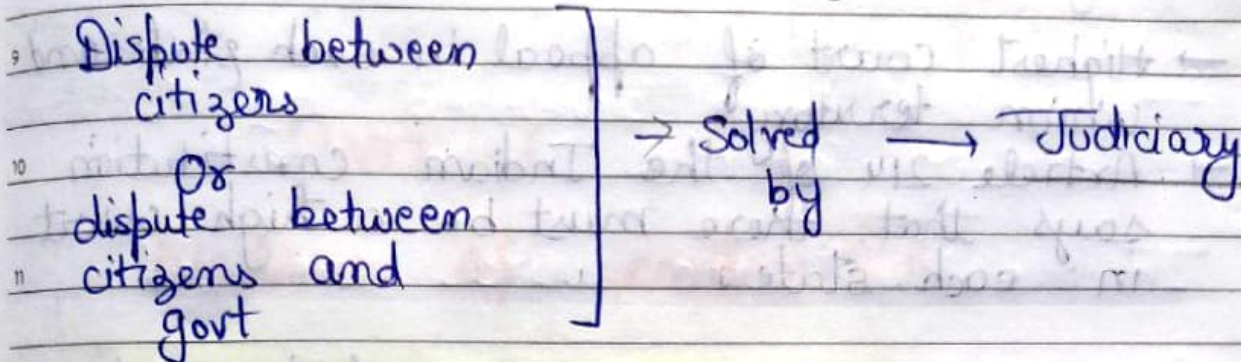 9 Dispute between
citizers
10 Or
dispute between
11 citizens and
govt
→ Solved → Judiciary
by